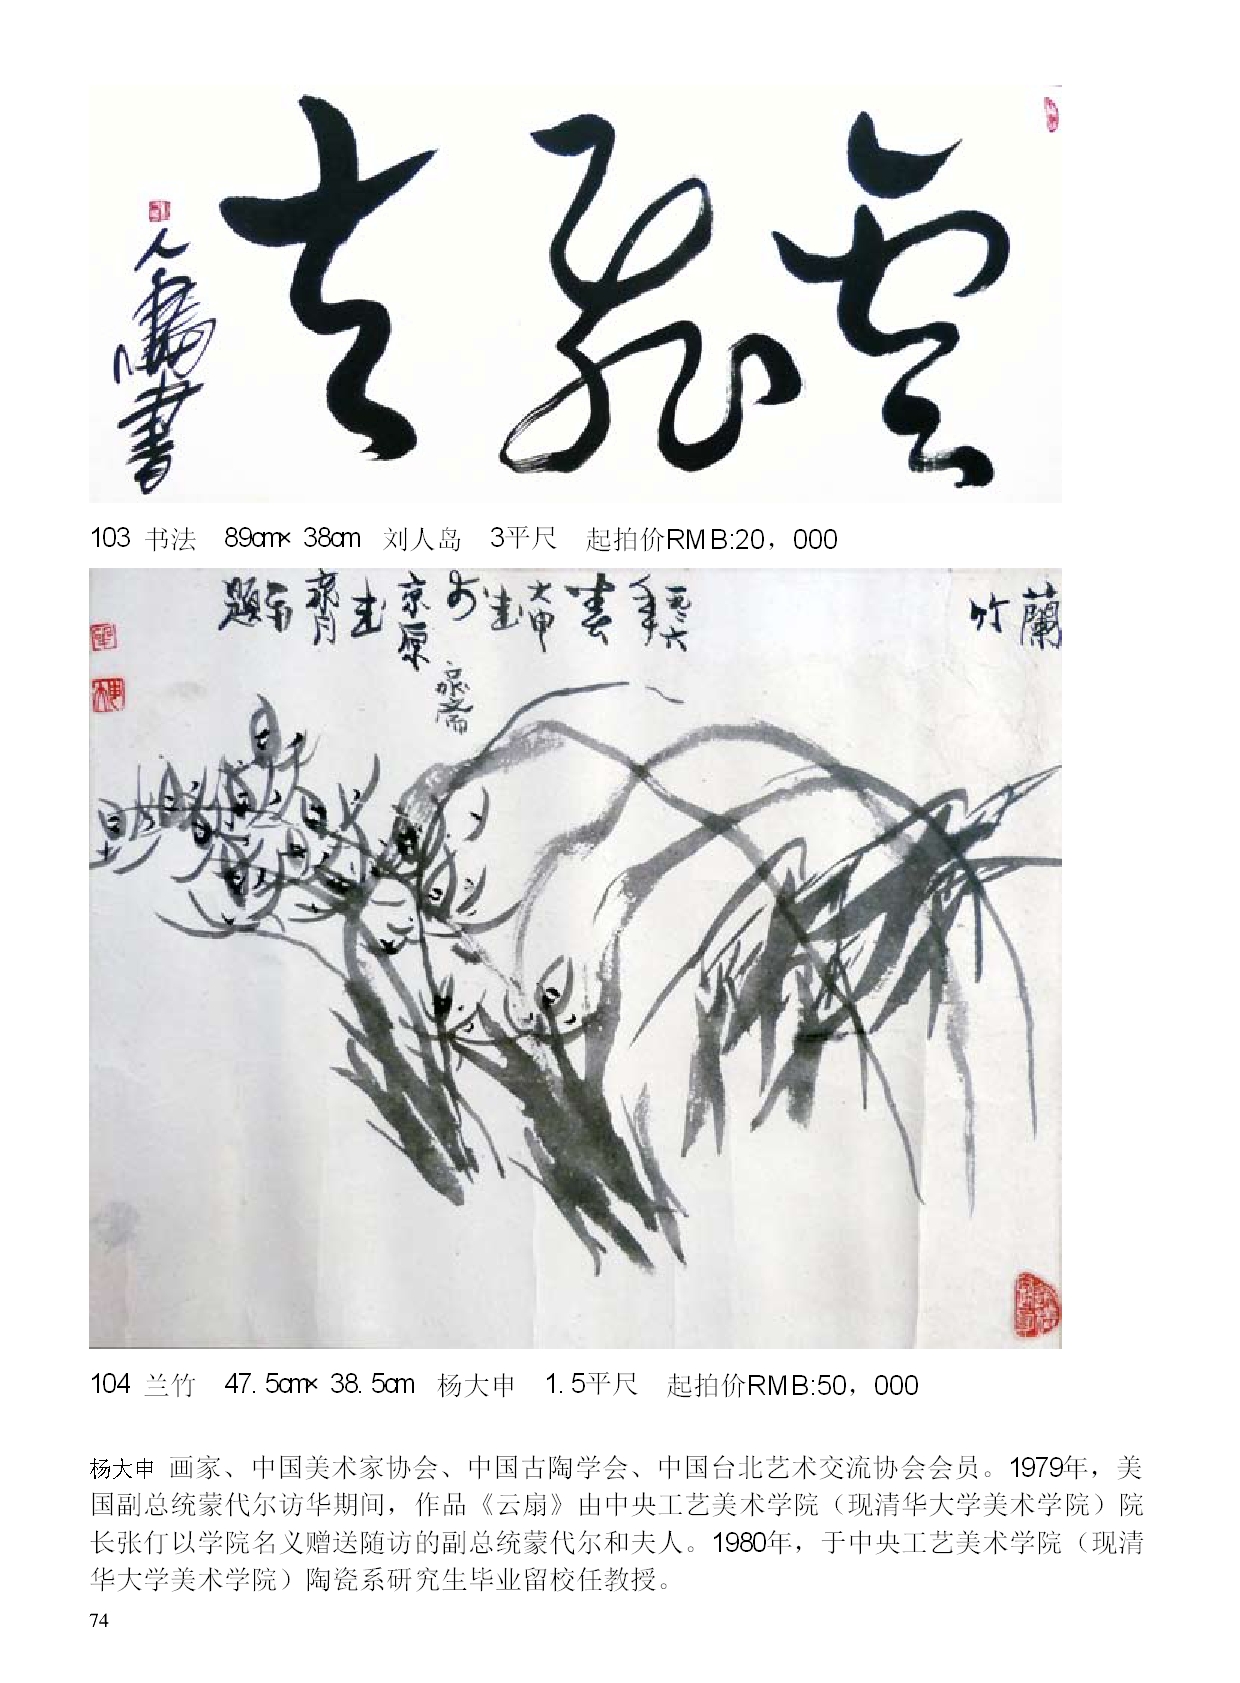 人
書
103 书法 89cm×38cm 刘人岛 3平尺 起拍价RMB:20，000
蘭
竹
年
大申
題
104 兰竹 47.5cm×38.5cm 杨大申 1.5平尺 起拍价RMB:50，000
杨大申 画家、中国美术家协会、中国古陶学会、中国台北艺术交流协会会员。1979年，美
国副总统蒙代尔访华期间，作品《云扇》由中央工艺美术学院（现清华大学美术学院）院
长张仃以学院名义赠送随访的副总统蒙代尔和夫人。1980年，于中央工艺美术学院（现清
华大学美术学院）陶瓷系研究生毕业留校任教授。
74